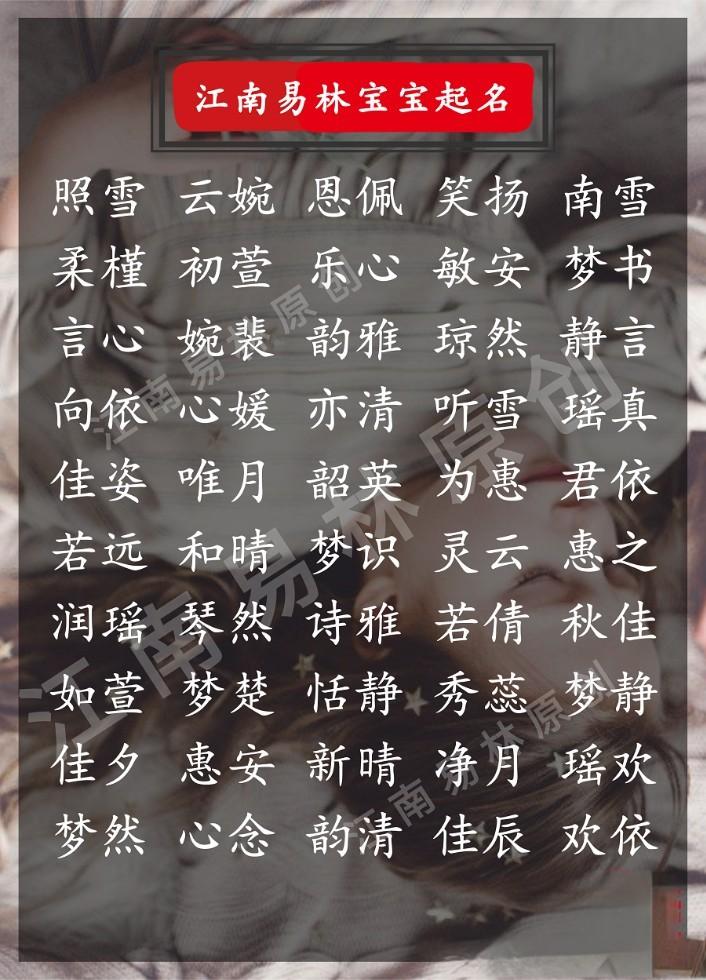 江南易林宝宝起名
照雪 云婉 恩佩 笑扬 南雪
柔槿 初萱 乐心 敏安 梦书
言心 婉裴 韵雅 琼然 静言
向依 心媛 亦清 听雪 瑶真
佳姿 唯月 韶英 为惠 君依
若远 和晴 梦识 灵云 惠之
润瑶 琴然 诗雅 若倩 秋佳
如萱 梦楚 恬静 秀蕊 梦静
佳夕 惠安 新晴 净月 瑶欢
梦然 心念 韵清 佳辰 欢依
江南易林原创
江南易林原创
江南易林原创